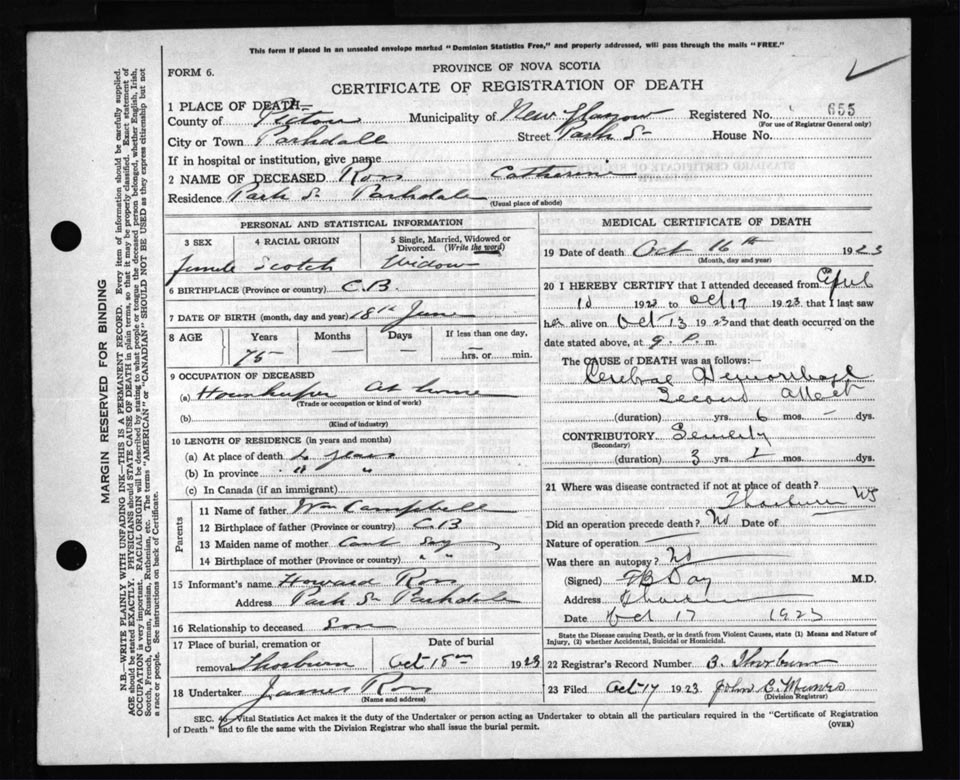 This form if placed in an unsealed envelope marked "Dominion Statistics Free," and properly addressed, will pass through the mails "FREE."
FORM 6.
PROVINCE OF NOVA SCOTIA
CERTIFICATE OF REGISTRATION OF DEATH
1 PLACE OF DEATH—
County of Pictou Municipality of New Glasgow Registered No. 655
(For use of Registrar General only)
City or Town Parkdale Street Park St House No.
If in hospital or institution, give name
2 NAME OF DECEASED Ross Catherine
Residence Park St Parkdale
(Usual place of abode)
MARGIN RESERVED FOR BINDING
N.B.—WRITE PLAINLY WITH UNFADING INK—THIS IS A PERMANENT RECORD. Every item of information should be carefully supplied.
AGE should be stated EXACTLY. PHYSICIANS should STATE CAUSE OF DEATH in plain terms, so that it may be properly classified. Exact statement of
OCCUPATION is very important. RACIAL ORIGIN will be described by stating to what people or tongue the deceased person belonged, whether English, Irish,
Scotch, French, German, Russian, Ruthenian, etc. The terms "AMERICAN" or "CANADIAN" SHOULD NOT BE USED as they express citizenship but not
a race or people. See instructions on back of Certificate.
PERSONAL AND STATISTICAL INFORMATION
3 SEX 4 RACIAL ORIGIN 5 Single, Married, Widowed or
Divorced. (Write the word)
Female Scotch Widow
6 BIRTHPLACE (Province or country) C.B.
7 DATE OF BIRTH (month, day and year) 18th June
8 AGE Years Months Days If less than one day,
75 hrs. or min.
9 OCCUPATION OF DECEASED
(a) Housekeeper At home
(Trade or occupation or kind of work)
(b)
(Kind of industry)
10 LENGTH OF RESIDENCE (in years and months)
(a) At place of death years
(b) In province " "
(c) In Canada (if an immigrant)
Parents
11 Name of father Wm Campbell
12 Birthplace of father (Province or country) C.B
13 Maiden name of mother Cant say
14 Birthplace of mother (Province or country) " "
15 Informant's name Howard Ross
Address Park St Parkdale
16 Relationship to deceased Son
17 Place of burial, cremation or Date of burial
removal Thorburn Oct 18th 1923
18 Undertaker James Ross
(Name and address)
MEDICAL CERTIFICATE OF DEATH
19 Date of death Oct 16th 1923
(Month, day and year)
20 I HEREBY CERTIFY that I attended deceased from
192 to Oct 17 1923 that I last saw
her alive on Oct 13 1923 and that death occurred on the
date stated above, at 9 P. m.
The CAUSE of DEATH was as follows:
Cerebral Hemorrhage
Second
(duration) yrs. 6 mos. dys.
CONTRIBUTORY Senility
(Secondary)
(duration) 3 dys.
21 Where was disease contracted if not at place of death?
Thorburn NS
Did an operation precede death? No Date of
Nature of operation
Was there an autopsy? No
(Signed) Day M.D.
Address Thorburn
Date Oct 17 1923
State the Disease causing Death, or in death from Violent Causes, state (1) Means and Nature of
Injury, (2) whether Accidental, Suicidal or Homicidal.
22 Registrar's Record Number 3. Thorburn
23 Filed Oct 17 1923 John E. Munro
(Division Registrar)
SEC. Vital Statistics Act makes it the duty of the Undertaker or person acting as Undertaker to obtain all the particulars required in the "Certificate of Registration
of Death" and to file the same with the Division Registrar who shall issue the burial permit. (OVER)